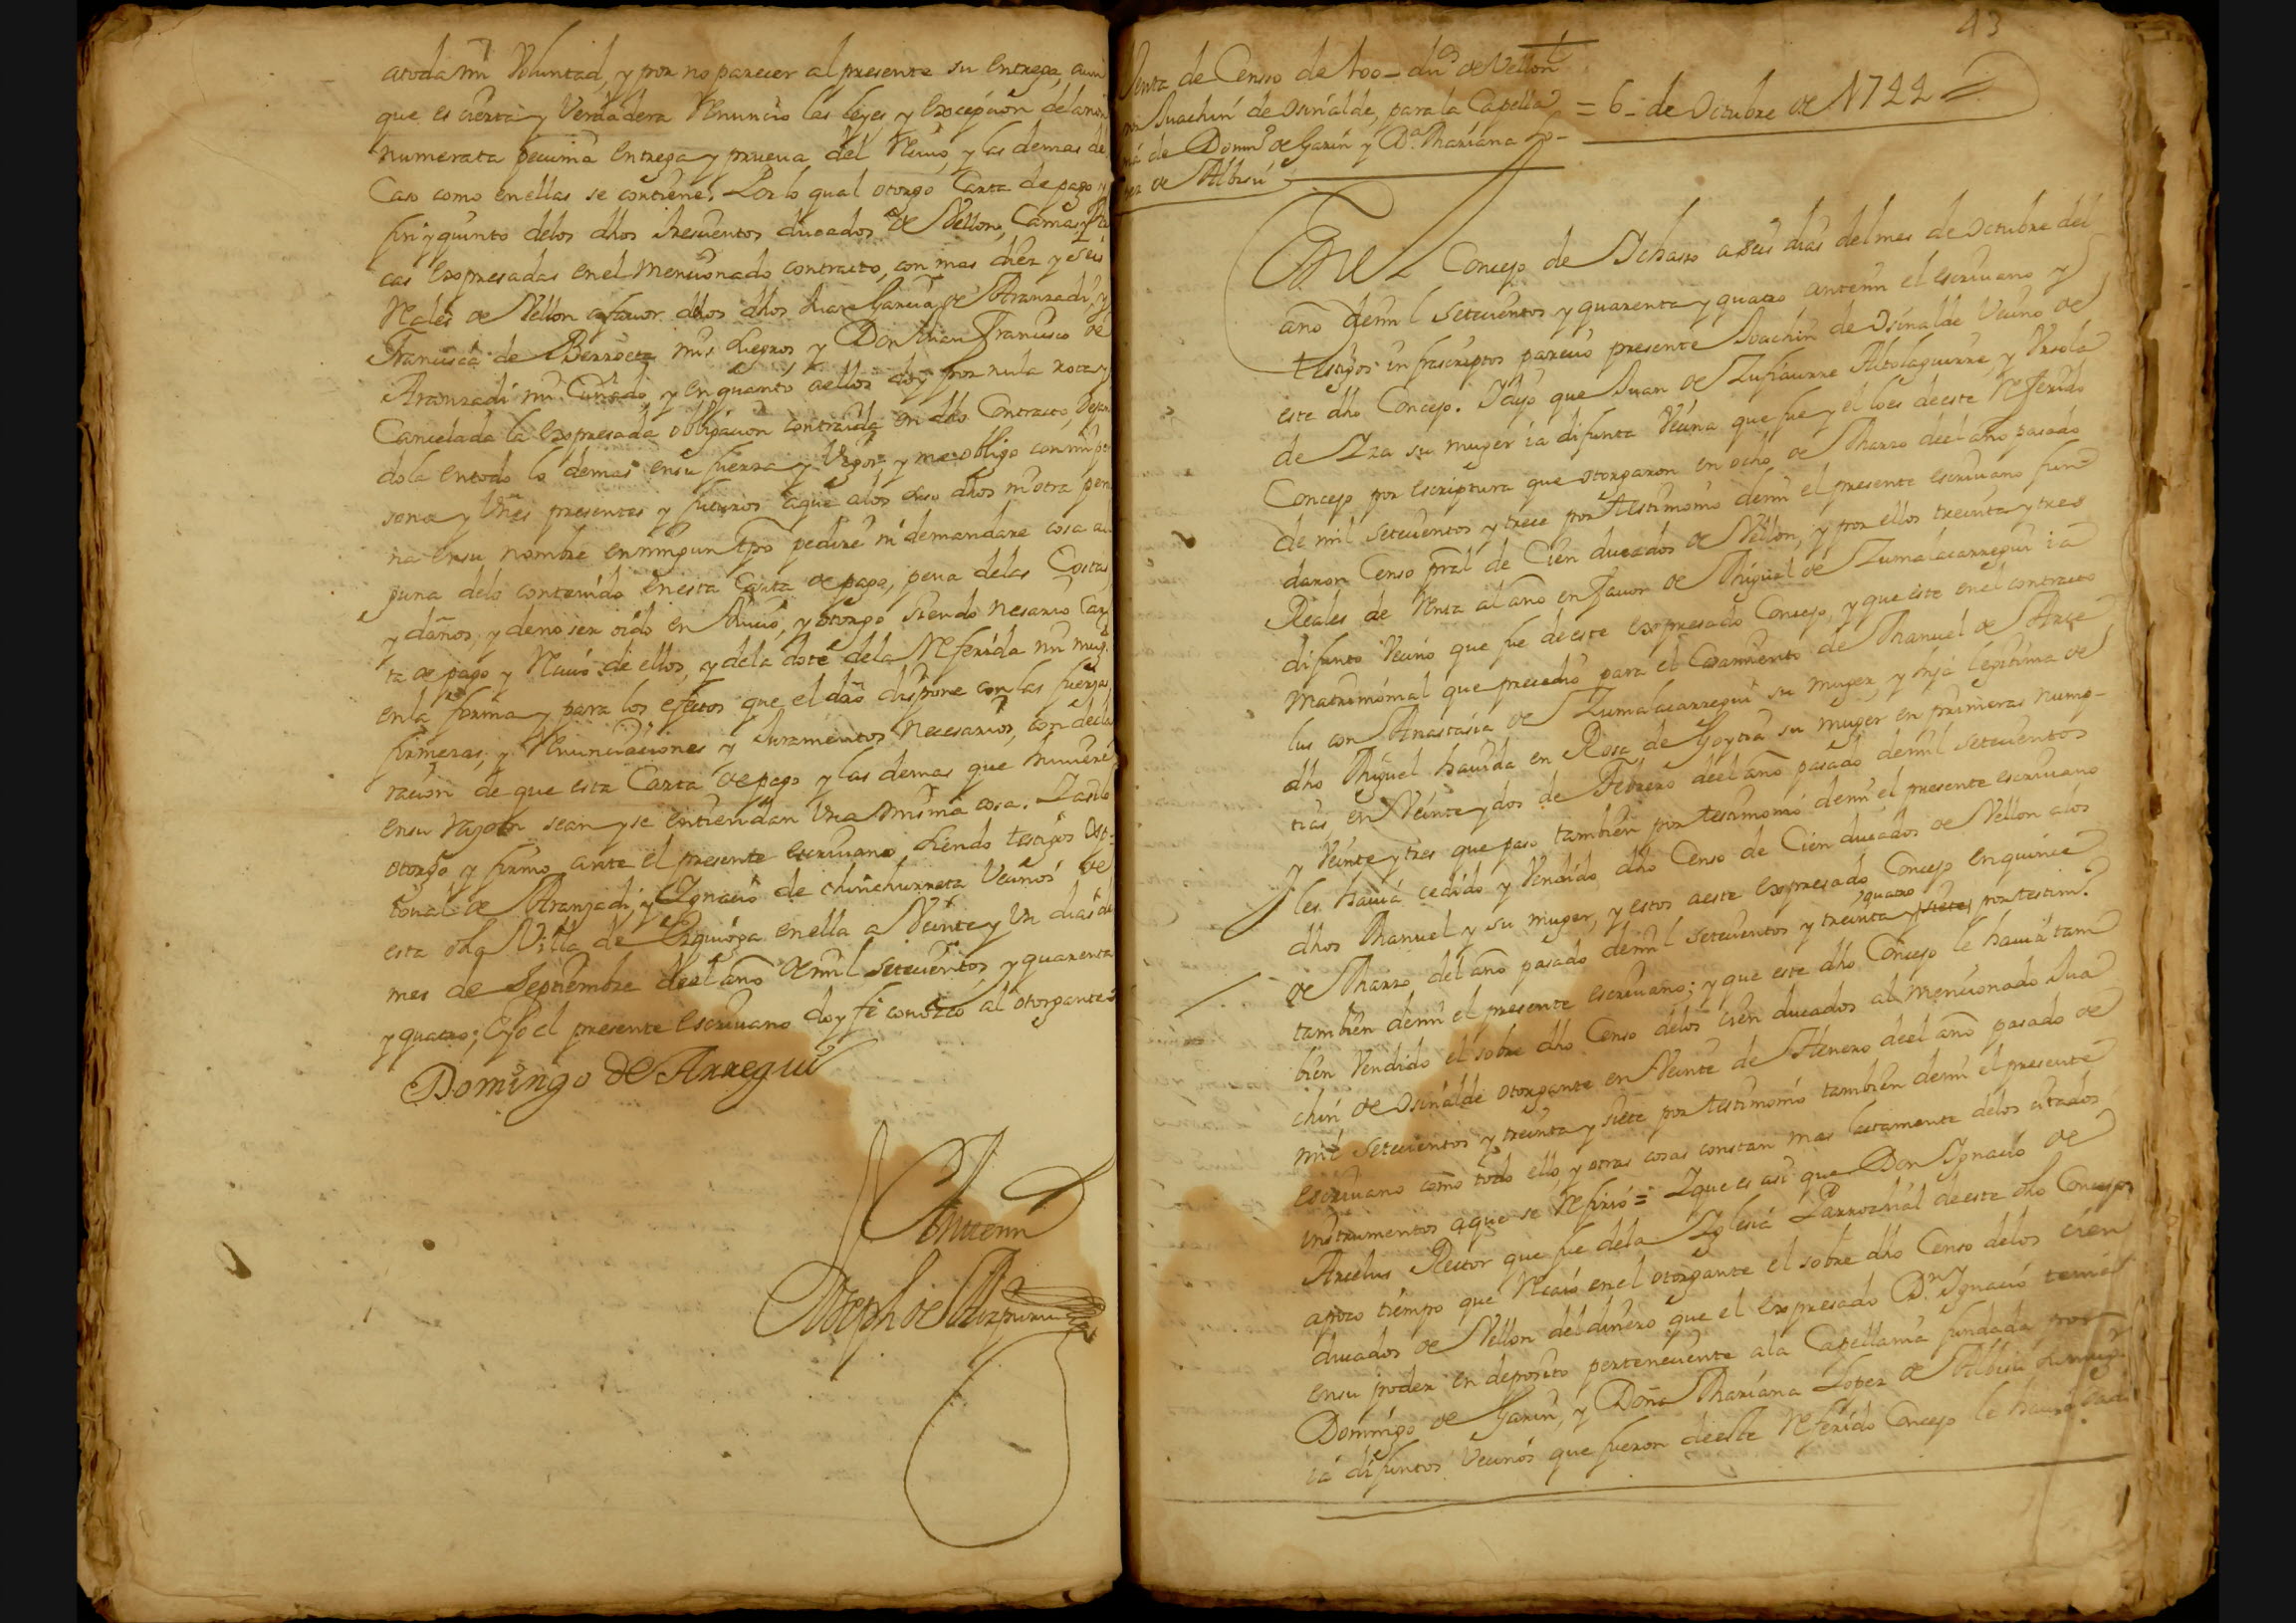 atoda mi Voluntad, y por no parecer al presente su entrega, aun
que es cierta y Verdadera Renuncio las leyes y excepcion dela non
numerata pecunia entrega y prueua del Reciuo, y las demas de
Caso como enellas se contiene. Por lo qual otorgo Carta de pago y
fin y quinto delos dhos trescientos ducados de Vellon, Camas y
cas expresadas enel mencionado contracto, con mas diez y seis
Reales de Vellon afauor dlos dhos Juan Garcia de Aranzadi, y
Francisca de Berroeta mis suegros y Don Juan Francisco de
Aranzadi mi Cuñado, y en quanto aellos doy por nula rota y
Cancelada la expresada obligacion contraida en dho Contracto, dejan
dola entodo lo demas ensu fuerza y Vigor, y me obligo con mi per
sona y Vienes presentes y futuros aque alos suso dhos ni otra perso
na ensu nombre enningun tpo pedire ni demandare cosa al
guna delo contenido enesta Carta de pago, pena delas Costas
y daños, y deno ser oido en Juicio, y otorgo siendo nesario Car
ta de pago y Reciuo de ellos, y dela dote dela Referida mi muger
enla forma y para los efectos que el dro dispone con las fuerzas
firmezas, y Renunciaciones y Juramentos necesarios, con decla
racion de que esta Carta de pago y las demas que huuiere
ensu razon sean y se entiendan Vna misma cosa. Y asilo
otorgo y firmo ante el presente escriuano siendo testigos
de Aranzadi, y Ygnacio de chinchurreta Vecinos de
esta dha Villa de Ezquioga enella a Veinte y Vn dias del
mes de Septiembre deel año de mil setecientos y quarenta
y quatro; E yo el presente escriuano doy fe conozco al otorgante
Domingo de Arregui
Antemi
Joseph de Aizpuru
43
Venta de Censo de 100 ds de Vellon
por Juachin de Osinalde, para la Capella
nia de Domo de Garin y Da Mariana Lo
pez de Albisu
= 6 de Octubre de 1744 =
En el Concejo de Ichaso a seis dias del mes de octubre del
año demil setecientos y quarenta y quatro antemi el escriuano y
testigos infrascriptos parecio presente Juachin de Osinalde Vecino de
este dho Concejo. Y dijo que Juan de Zufiaurre Altolaguirre y Vrsola
de Yza su muger ia difunta Vecina que fue y el loes deeste Referido
Concejo por escriptura que otorgaron en ocho de Marzo deel año pasado
de mil setecientos y trece por testimonio demi el presente escriuano fun
daron Censo pral de Cien ducados de Vellon, y por ellos treinta y tres
Reales de renta al año en fauor de Miguel de Zumalacarregui ia
difunto Vecino que fue deeste expresado Concejo, y que este enel contracto
matrimonial que precedio para el Casamiento de Manuel de Arze
lus con Anastasia de Zumalacarregui su muger, y hija legitima de
dho Miguel hauida en Rosa de Goytia su muger en primeras nump
cias, en Veinte y dos de Febrero deel año pasado demil setecientos
y Veinte y tres que paso tambien por testimonio demi el presente escriuano
les hauia cedido y Vendido dho Censo de Cien ducados de Vellon alos
dhos Manuel y su muger, y estos aeste expresado Concejo enquince
de Marzo del año pasado demil setecientos y treinta y siete quatro por testimo
tambien demi el presente escriuano; y que este dho Concejo le hauia tam
bien Vendido el sobre dho Censo delos cien ducados al mencionado Jua
chin de Osinalde otorgante en Veinte de Henero deel año pasado de
mil setecientos y treinta y siete por testimonio tambien demi el presente
escriuano como todo ello, y otras cosas constan mas lartamente delos citados
instrumentos aque se Refirio = Y que es asi que Don Ygnacio de
Arcelus Rector que fue dela Yglesia Parrochial deeste dho Concejo,
apoco tiempo que Recaio enel otorgante el sobre dho Censo delos cien
ducados de Vellon del dinero que el expresado Dn Ygnacio tenia
ensu poder en deposito perteneciente ala Capellania fundada por
Domingo de Garin, y Doña Mariana Lopez de Albisu su muger
ia difuntos Vecinos que fueron deeste Referido Concejo le hauia